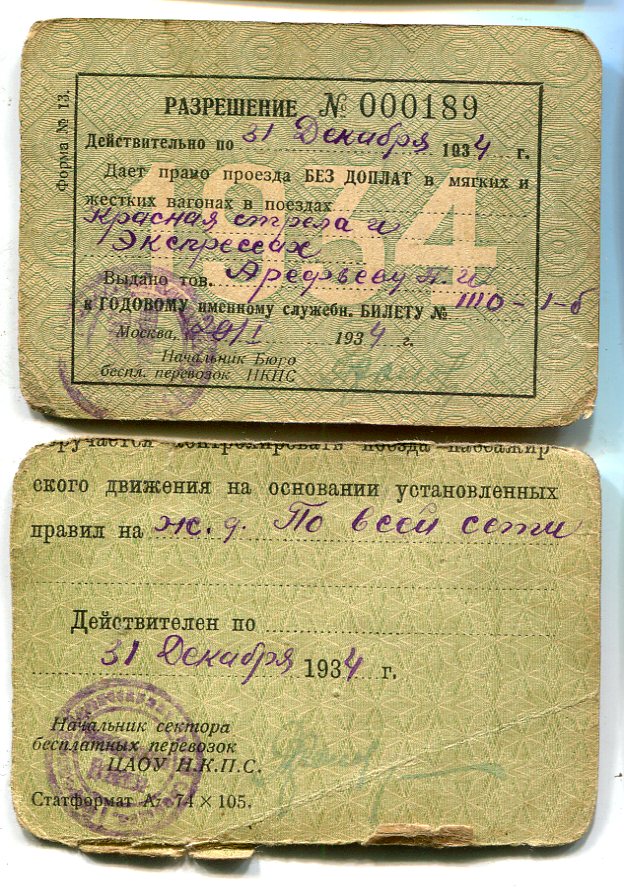 Форма № 13.
РАЗРЕШЕНИЕ № 000189
Действительно по 31 Декабря 1934 г.
1934
Дает право проезда БЕЗ ДОПЛАТ в мягких и
жестких вагонах в поездах
Красная стрела и
Экспрессах
Выдано тов. Арефьеву П. И
к ГОДОВОМУ именному служебн. БИЛЕТУ № ТПО-1-б
Москва, 20/I 1934 г.
Начальник Бюро
беспл. перевозок НКПС
поручается контролировать поезда пассажир-
ского движения на основании установленных
правил на ж. д. По всей сети
Действителен по
31 Декабря 1934 г.
Начальник сектора
бесплатных перевозок
ЦАОУ Н.К.П.С.
Статформат А7 74 × 105.